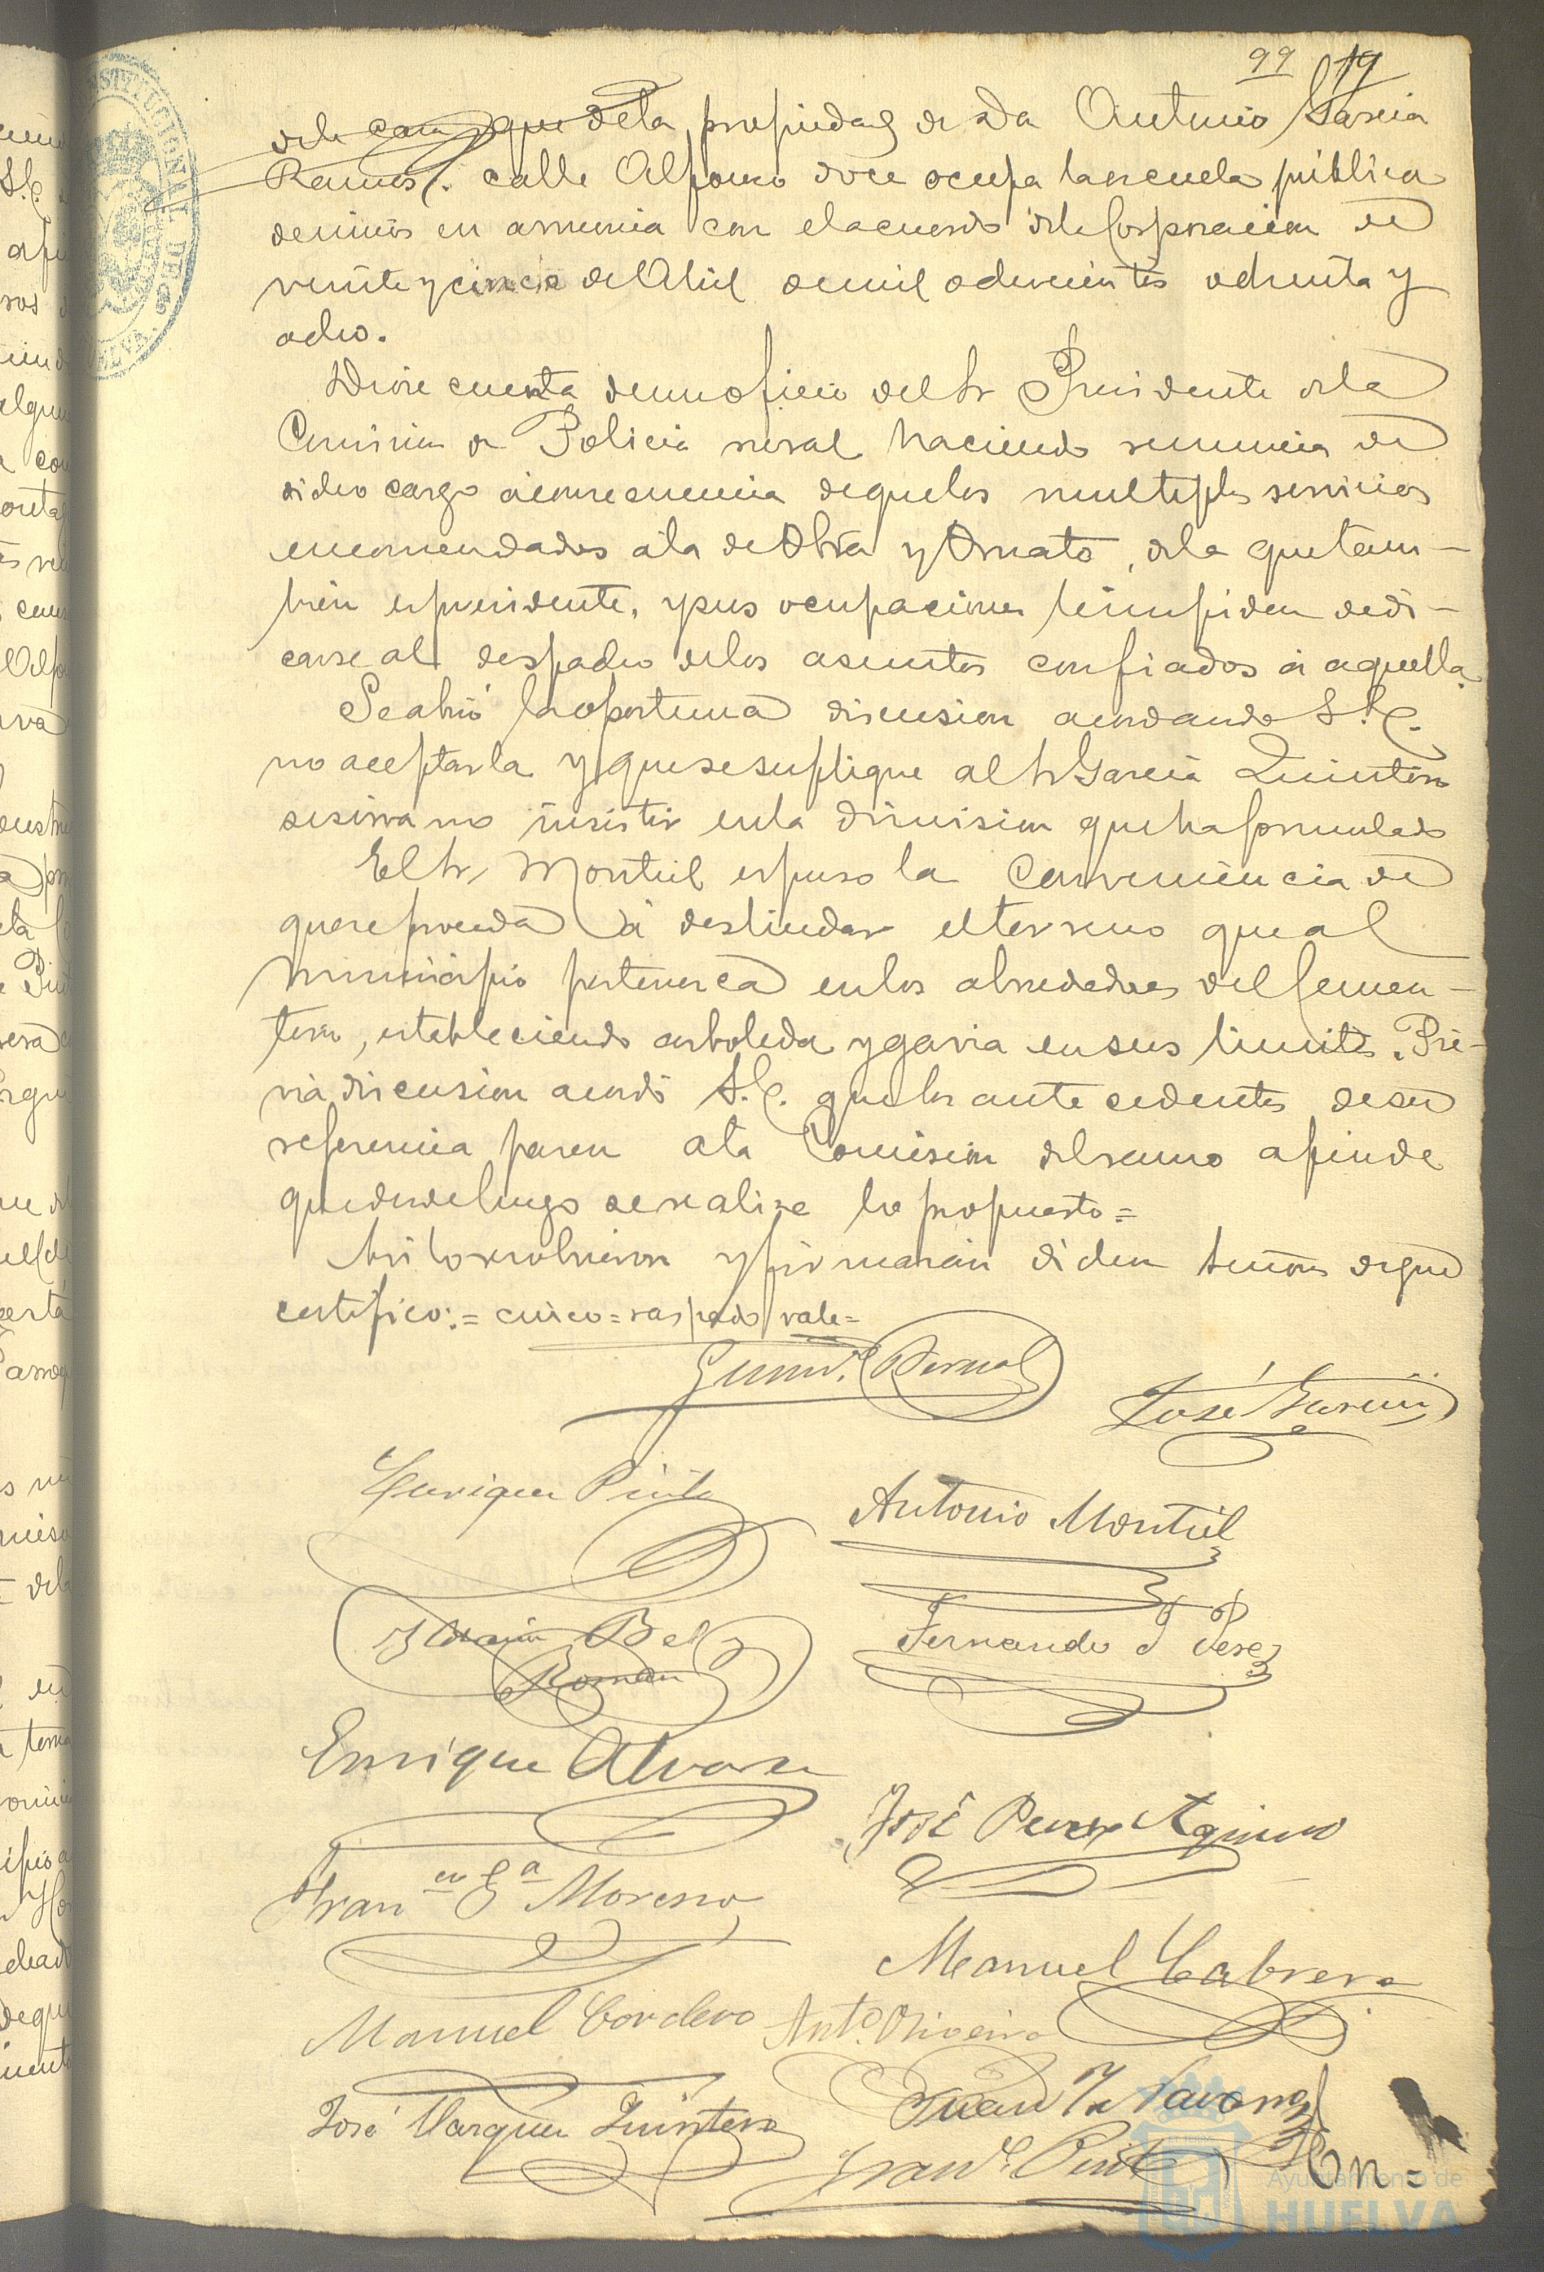 99 19
dela casa que dela propiedad de Da Antonio Garcia
Ramos calle Alfonso doce ocupa la escuela pública
de niños en armonia con el acuerdo dela Corporacion de
veinte y cinco de Abril de mil ochocientos ochenta y
ocho.
Diose cuenta de un oficio del Sr Presidente dela
Comision de Policia rural haciendo renuncia de
dicho cargo á consecuencia de que los multiples servicios
encomendados á la de Obra y Ornato, dela que tam-
bien es presidente, y sus ocupaciones le impiden dedi-
carse al despacho delos asuntos confiados á aquella.
Se abrió la oportuna discusion acordando S.E.
no aceptarla y que se suplique al Sr Garcia Quintero
se sirva no insistir en la dimision que ha formulado
El Sr Montiel expuso la conveniencia de
que se proceda á deslindar el terreno que al
Municipio pertenezca en los alrededores del Cemen-
terio, estableciendo arboleda y gavia en sus limites. Pre-
via discusion acordó S.E. que los antecedentes de su
referencia pasen a la Comision del ramo a fin de
que desde luego se realize lo propuesto=
Asi lo resolvieron y firmarán dichos Señores de que
certifico:= cinco=raspado vale=
Bernal
José Garcia
Enrique Pinto
Antonio Montiel
Bel
Roman
Fernando P Perez
Enrique Alvarez
José Perez Aguirre
Franco Ga Moreno
Manuel Cabrera
Manuel Cordero
Anto. Oliveira
José Vazquez Quintero
Juan
Franco Pinto
En=
Ayuntamiento de
HUELVA